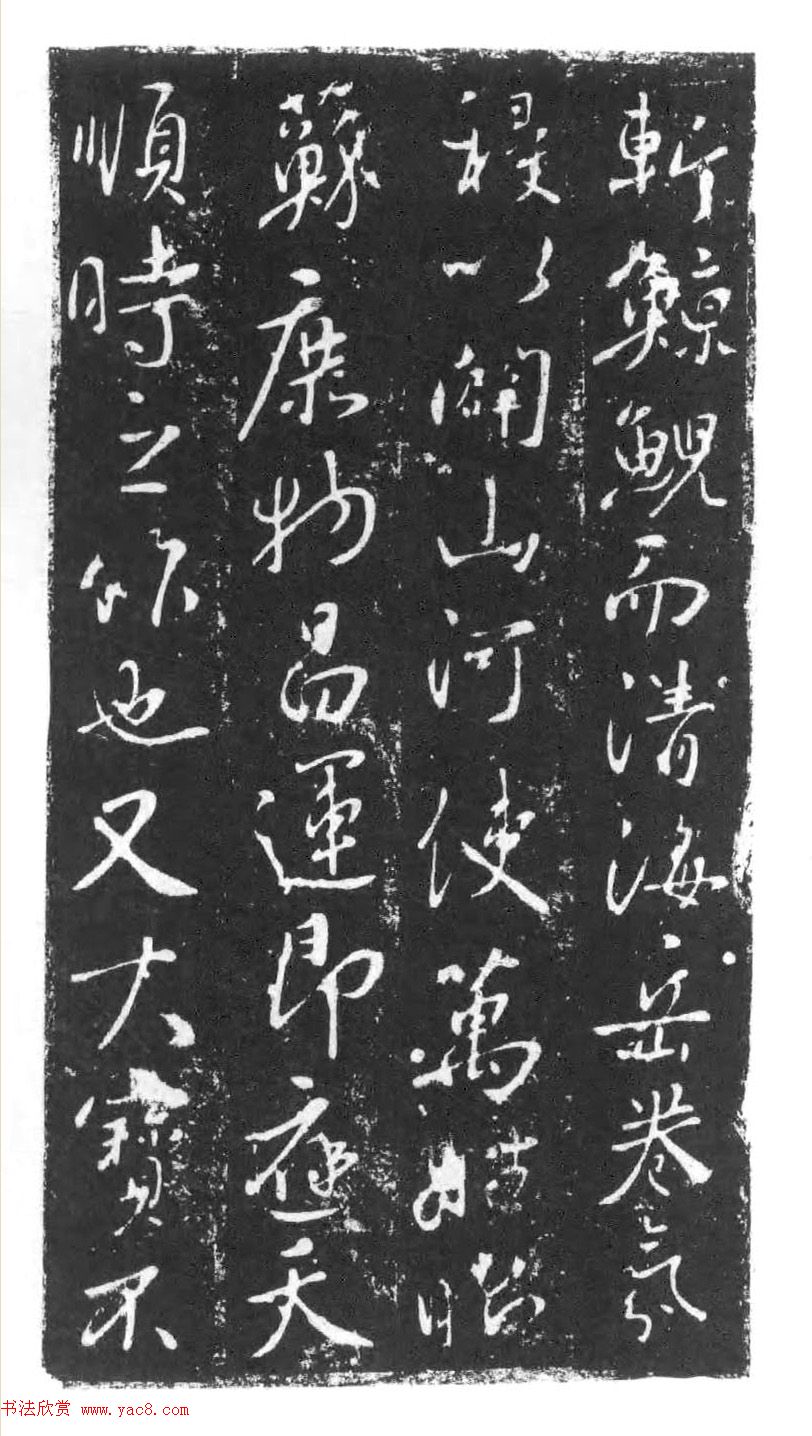 斬鯨鯢而清海岳卷氛
祲以闢山河使萬姓昭
蘇庶物昌運即應天
順時之師也又大寶不
书法欣赏 www.yac8.com